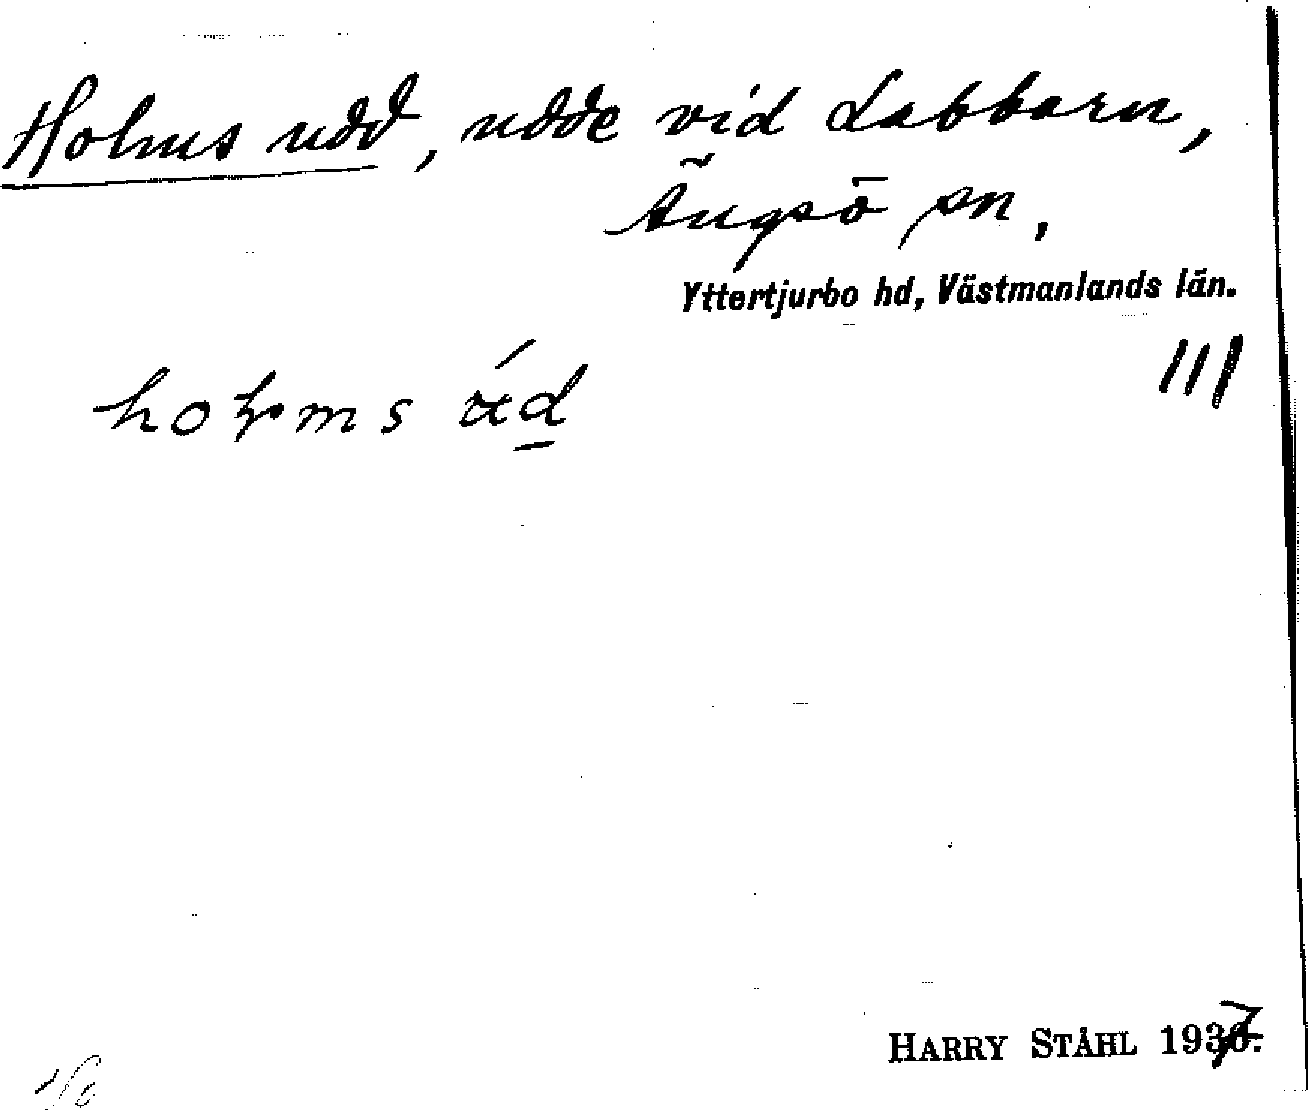 Holms udd, udde vid Labbarn,
Ängsö sn,
Yttertjurbo hd, Västmanlands län.
111
HARRY STÅHL 1937.